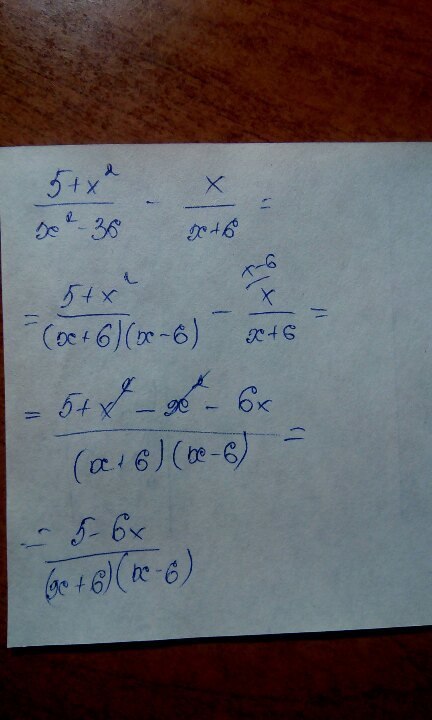 5+x² / x²-36 - x / x+6 =
= 5+x² / (x+6)(x-6) - x / x+6 ^x-6 =
= 5+x² - x² - 6x / (x+6)(x-6) =
= 5-6x / (x+6)(x-6)